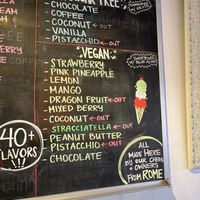 FREE
- CHOCOLATE
- COFFEE
- COCONUT ← OUT
- VANILLA
- PISTACCHIO ← OUT
VEGAN
- STRAWBERRY
- PINK PINEAPPLE
- LEMON
- MANGO
- DRAGON FRUIT ← OUT
- MIXED BERRY
- COCONUT ← OUT
- STRACCIATELLA ← OUT
- PEANUT BUTTER
- PISTACCHIO ← OUT
- CHOCOLATE
40+
FLAVORS
!!
ALL
MADE HERE
BY OUR CHEF
+ OWNERS
FROM ROME